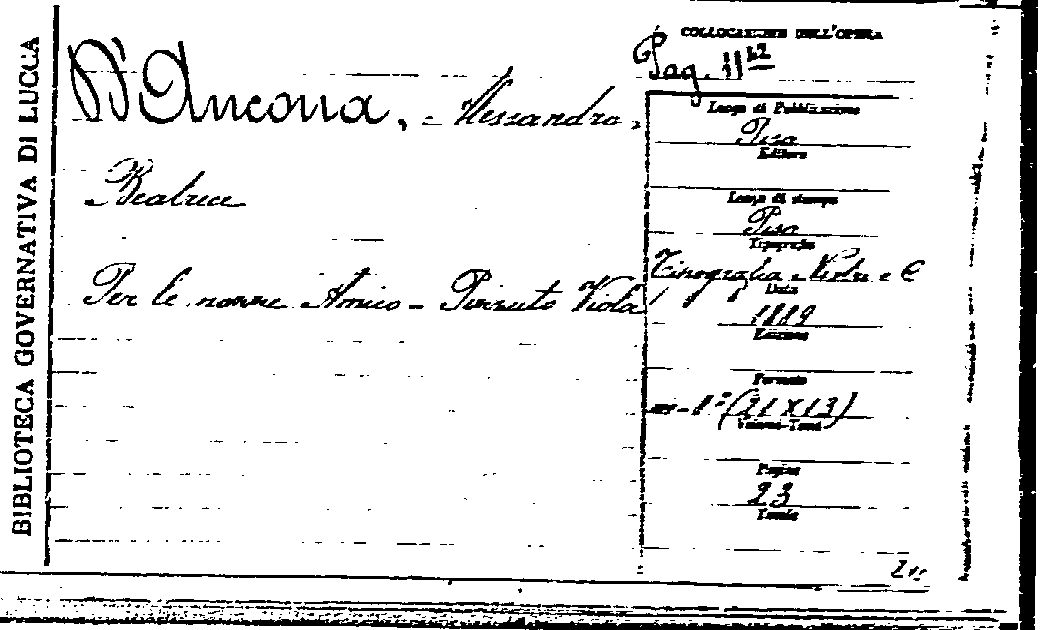 BIBLIOTECA GOVERNATIVA DI LUCCA
D'Ancona, - Alessandro.
Beatrice
Per le nozze Amico -
COLLOCAZIONE DELL'OPERA
Pag. 11
Luogo di Pubblicazione
Pisa
Editore
Luogo di stampa
Pisa
Tipografia
Tipografia Nistri e C
Data
1889
Edizione
Formato
(21 x 13)
Volumi-Tomi
Pagine
23
Tavole